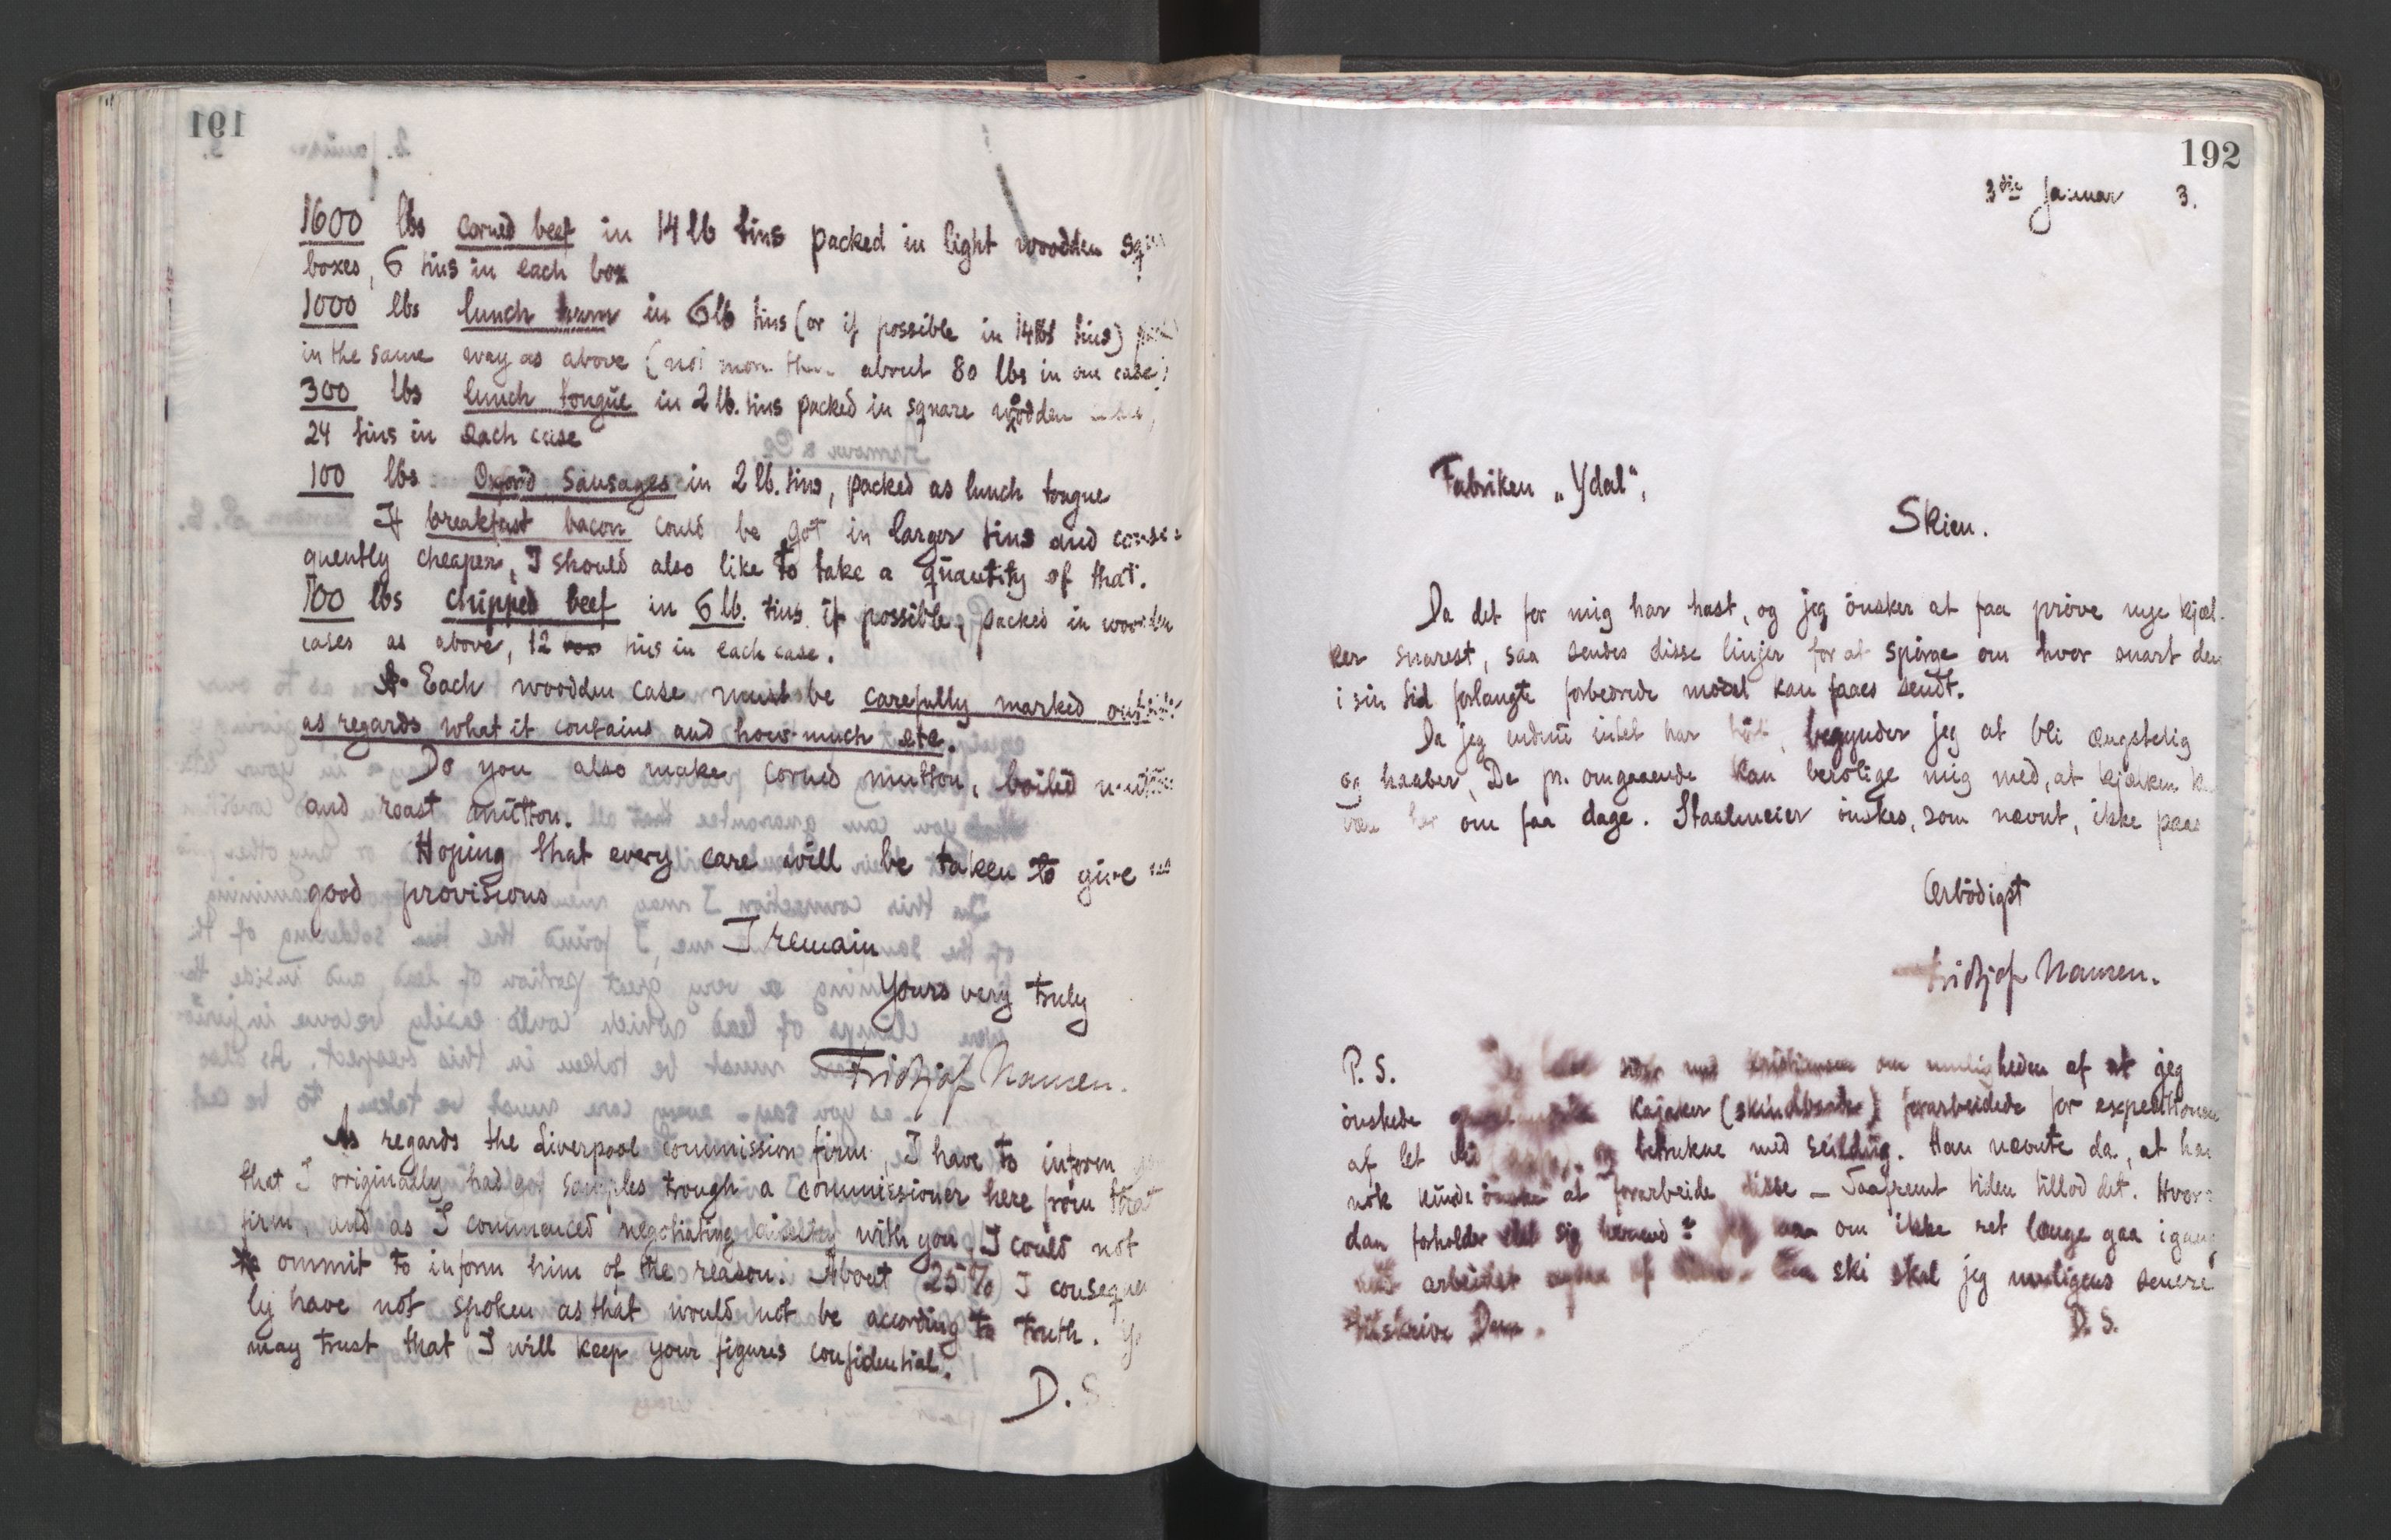 191
1600 lbs corned beef in 14 lb tins packed in light wooden
boxes, 6 tins in each box
1000 lbs lunch ham in 6 lb tins (or if possible in 14 lbs tins)
in the same way as above (not more than about 80 lbs in one case)
300 lbs lunch tongue in 2 lb. tins packed in square wodden
24 tins in each case
100 lbs Oxford Sausages in 2 lb. tins, packed as lunch tongue
If breakfast bacon could be got in larger tins and conse-
quently cheaper, I should also like to take a quantity of that.
100 lbs chipped beef in 6 lb. tins if possible, packed in wooden
cases as above, 12 tins in each case.
Each wooden case must be carefully marked outside
as regards what it contains and how much etc.
Do you also make corned mutton, boiled mutton
and roast mutton.
Hoping that every care will be taken to give us
good provisions
I remain
Yours very truly
Fridtjof Nansen.
As regards the Liverpool commission firm, I have to inform
that I originally had got samples trough a commissioner here from that
firm, and as I commenced negotiating directly with you, I could not
ommit to inform him of the reason. About 25% I conseque
ly have not spoken as that would not be according to truth.
may trust that I will keep your figures confidential.
D. S.
192
3die Januar 3.
Fabriken „Ydal“,
Skien.
Da det for mig har hast, og jeg önsker at faa pröve nye kjæl-
ker snarest, saa sendes disse linjer for at spörge om hvor snart den
i sin tid forlangte forbedrede model kan faaes sendt.
Da jeg endnu intet har hört, begynder jeg at bli ængstelig
og haaber, De pr. omgaaende kan berolige mig med, at kjælken
være her om faa dage. Staalmeier önskes, som nævnt, ikke paa
Ærbödigst
Fridtjof Nansen.
P. S. Jeg med Kristiansen om muligheden af at jeg
önskede kajaker (skindbaade) forarbeidede for expeditionen
af let og betrukne med seildug. Han nævnte da, at han
nok kunde önske at forarbeide disse – saafremt tiden tillod det. Hvor-
dan forholder det sig hermed? om ikke ret længe gaa igang
med arbeidet ski skal jeg muligens senere
tilskrive Dem.
D. S.